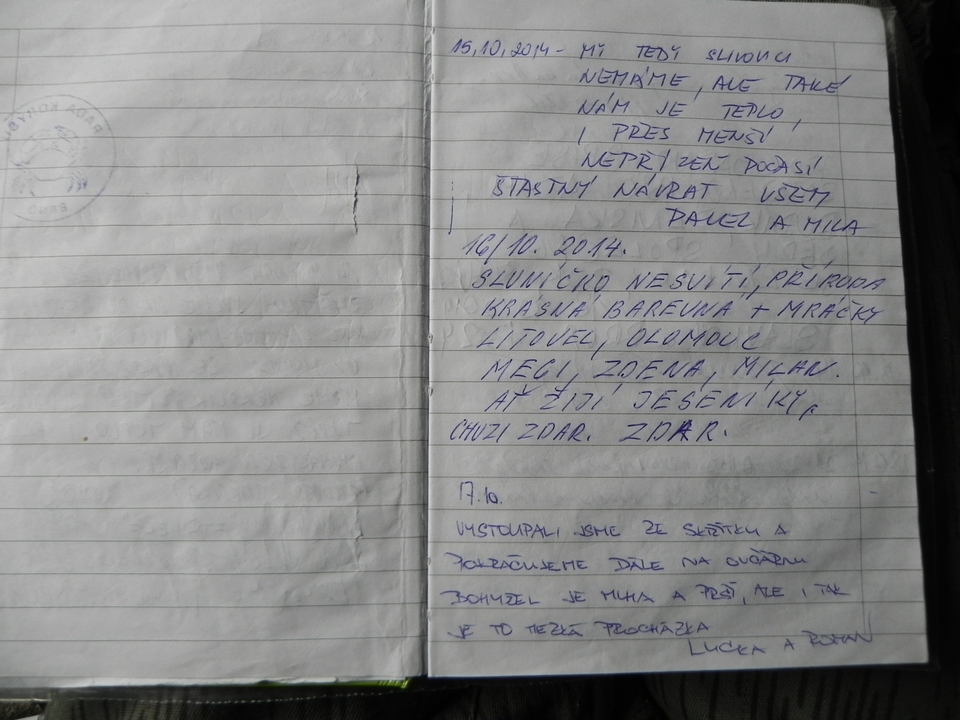 15.10.2014 - MY TEDY SLIVOVICI
NEMÁME, ALE TAKÉ
NÁM JE TEPLO,
I PŘES MENŠÍ
NEPŘÍZEŇ POČASÍ
ŠTASTNÝ NÁVRAT VŠEM
PAVEL A MILA
16/10. 2014.
SLUNÍČKO NESVÍTÍ, PŘÍRODA
KRÁSNÁ BAREVNÁ + MRÁČKY
LITOVEL, OLOMOUC
MEGI, ZDENA, MILAN.
AŤ ŽIJÍ JESENÍKY,
CHŮZI ZDAR. ZDAR.
17.10.
VYSTOUPALI JSME ZE SKŘÍTKU A
POKRAČUJEME DÁLE NA OVČÁRNU
BOHUŽEL JE MLHA A PRŠÍ, ALE I TAK
JE TO HEZKÁ PROCHÁZKA
LUCKA A ROMAN